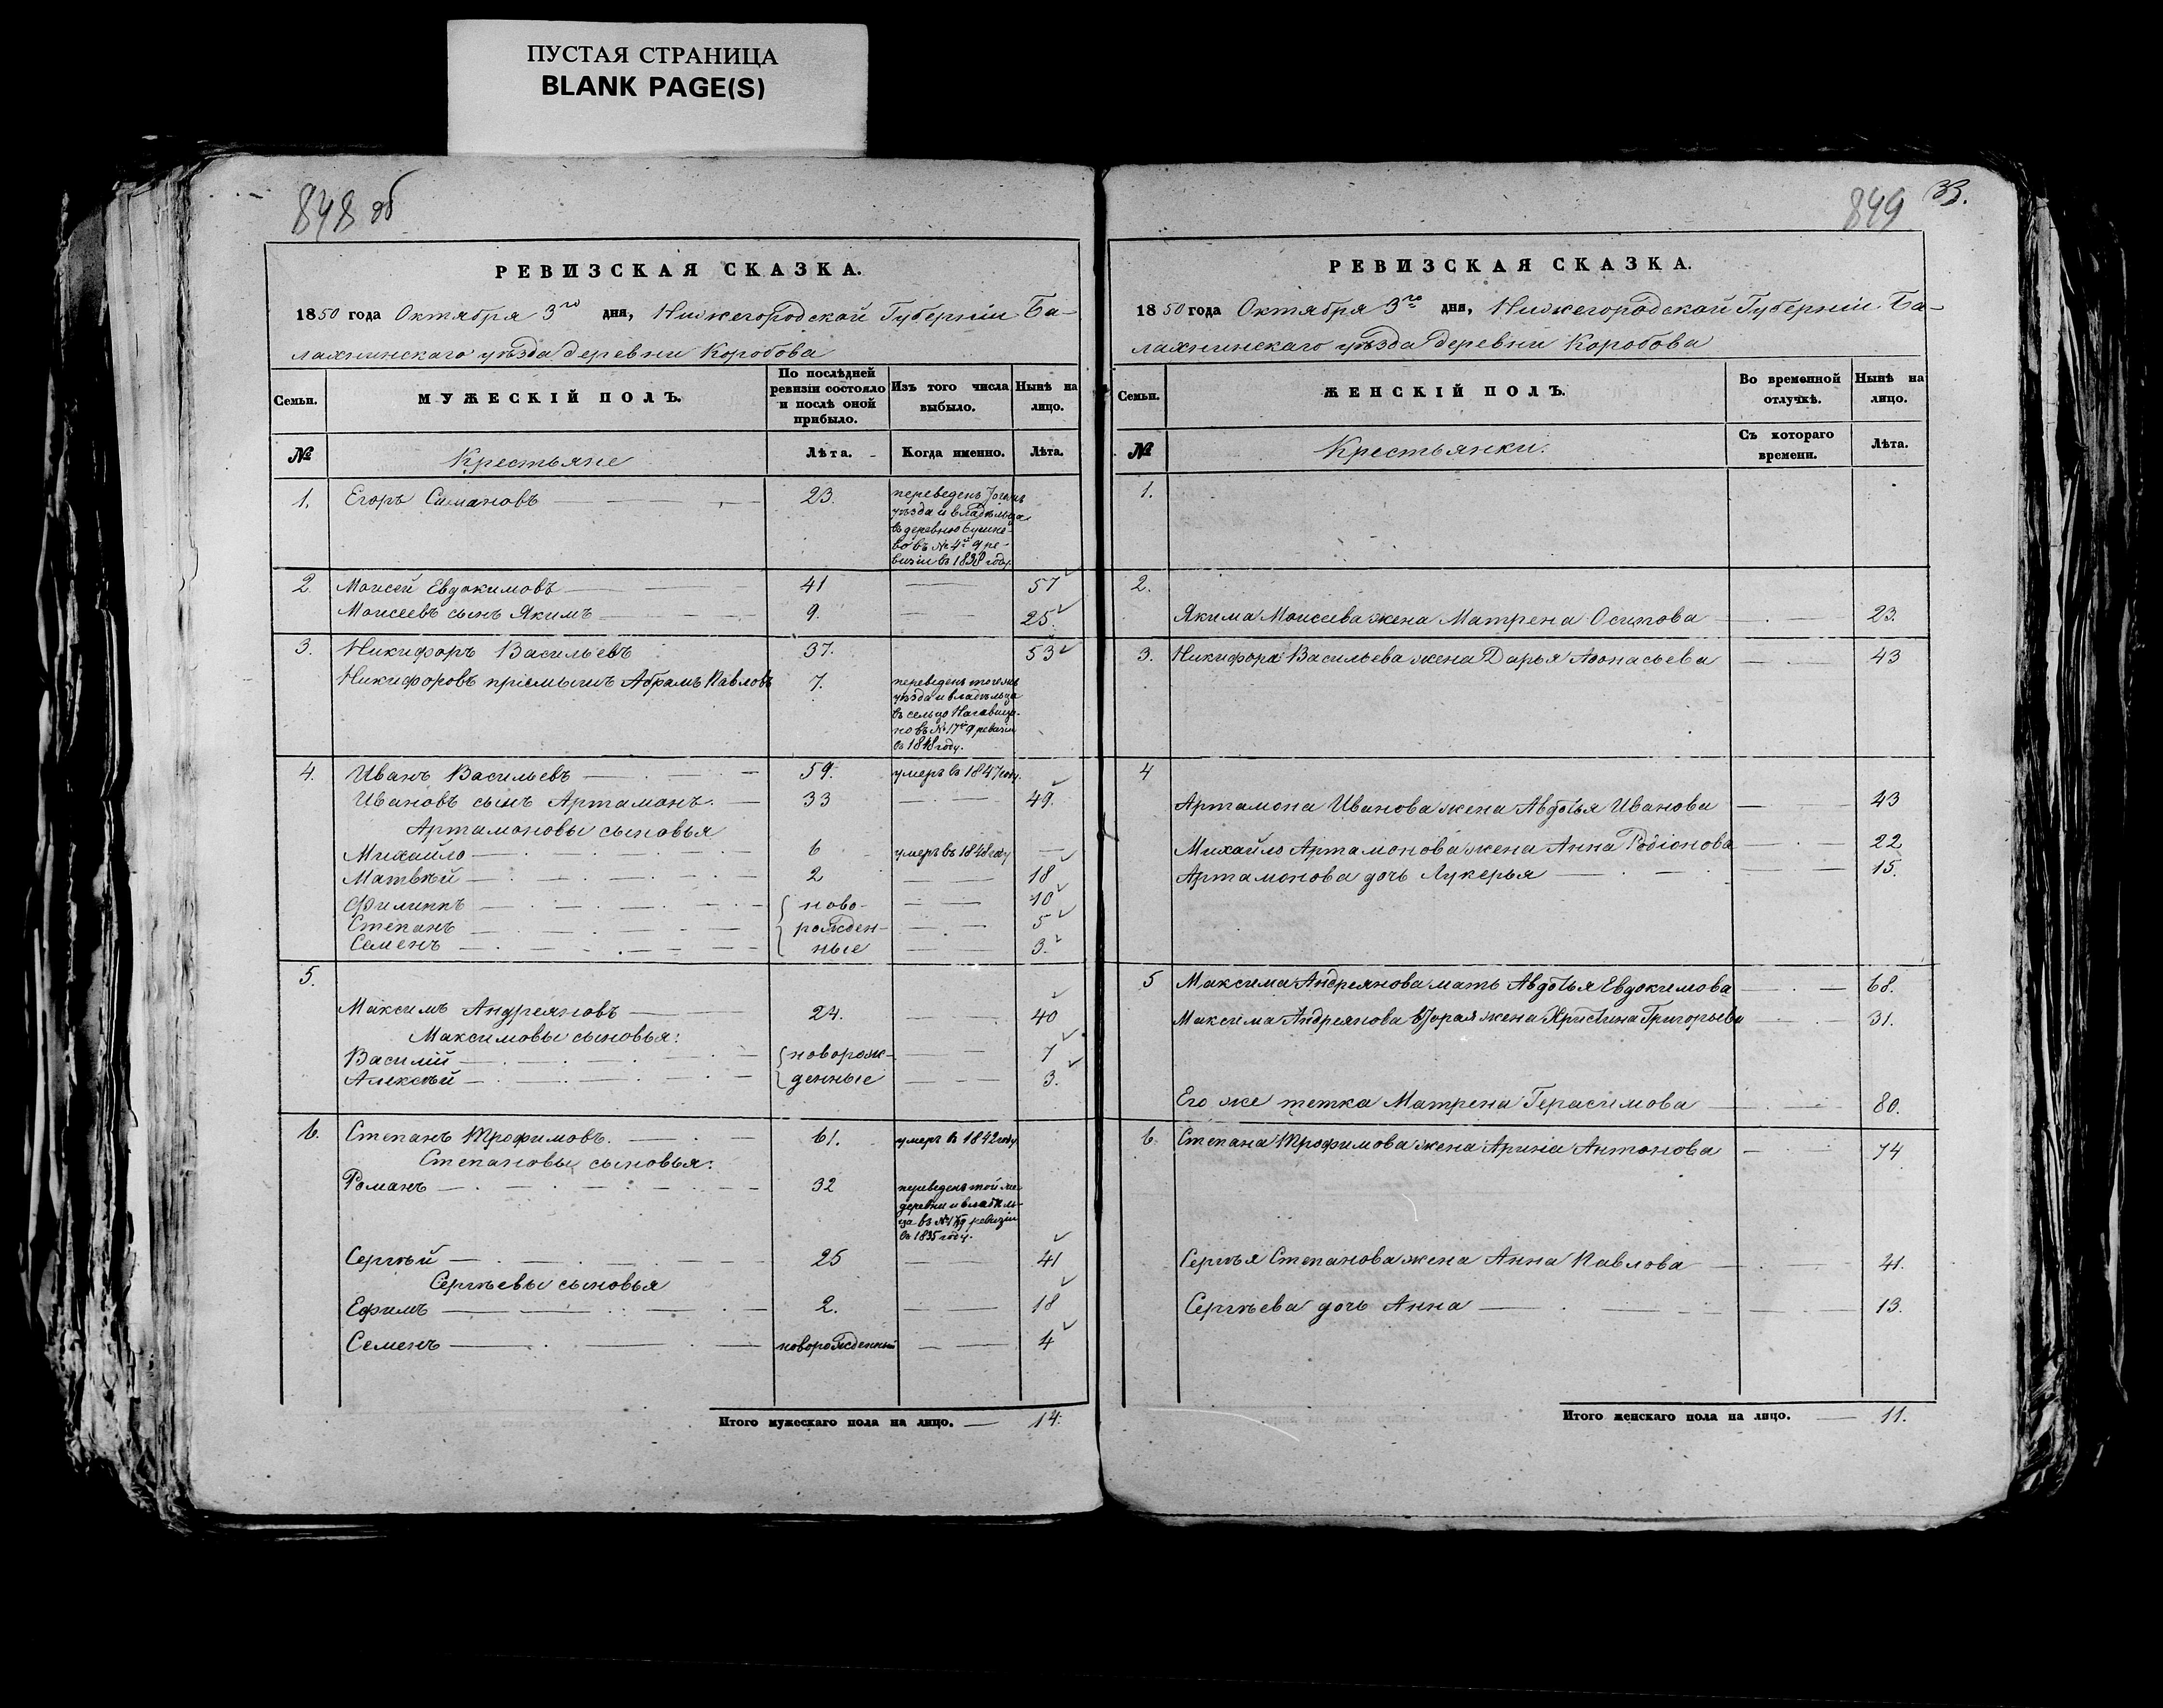 ПУСТАЯ СТРАНИЦА
BLANK PAGE(S)
848 об
РЕВИЗСКАЯ СКАЗКА.
1850 года Октября 3го дня, Нижегородской Губерніи Ба-
лахнинскаго уѣзда деревни Коробова
Семьи.
МУЖЕСКІЙ ПОЛЪ.
По послѣдней
ревизіи состояло
и послѣ оной
прибыло.
Изъ того числа
выбыло.
Нынѣ на
лицо.
№ Крестьяне Лѣта. Когда именно. Лѣта.
1. Егоръ Симановъ 23. переведенъ тогожъ
уѣзда и владѣльца
въ деревню
въ № 4й 9 ре-
визіи въ 1838 году.
2. Моисей Евдокимовъ 41 57
Моисеевъ сынъ Якимъ 9. 25.
3. Никифоръ Васильевъ 37. 53
Никифоровъ пріемышъ Абрамъ Павловъ 7. переведенъ тогожъ
уѣзда и владѣльца
въ сельцо
въ № 17й 9 ревизіи
въ 1848 году.
4. Иванъ Васильевъ 59. умеръ въ 1847 году.
Ивановъ сынъ Артамонъ. 33 49.
Артамоновы сыновья
Михайло 6 умеръ въ 1848 году
Матвѣй 2 18
Филиппъ ново- 10
Степанъ рожден- 5
Семенъ ные 3.
5.
Максимъ Андреяновъ 24. 40
Максимовы сыновья:
Василій новорож- 7
Алексѣй денные 3.
6. Степанъ Трофимовъ. 61. умеръ въ 1842 году
Степановы сыновья:
Романъ 32 переведенъ той же
деревни и владѣль-
ца въ № 9 ревизіи
въ 1835 году.
Сергѣй 25 41
Сергѣевы сыновья
Ефимъ 2. 18
Семенъ новорожденный 4
Итого мужескаго пола на лицо. 14.
849 33.
РЕВИЗСКАЯ СКАЗКА.
1850 года Октября 3го дня, Нижегородской Губерніи Ба-
лахнинскаго уѣзда деревни Коробова
Семьи.
ЖЕНСКІЙ ПОЛЪ.
Во временной
отлучкѣ.
Нынѣ на
лицо.
№ Крестьянки. Съ котораго
времени.
Лѣта.
1.
2.
Якима Моисеева жена Матрена Осипова 23.
3. Никифора Васильева жена Дарья Афонасьева 43
4
Артамона Иванова жена Авдотья Иванова 43
Михайло Артамонова жена Анна Родіонова 22
Артамонова дочь Лукерья 15.
5 Максима Андреянова мать Авдотья Евдокимова 68.
Максима Андреянова вторая жена Христина Григорьева 31.
Его же тетка Матрена Герасимова 80.
6 Степана Трофимова жена Арина Антонова 74
Сергѣя Степанова жена Анна Павлова 41.
Сергѣева дочь Анна 13.
Итого женскаго пола на лицо. 11.